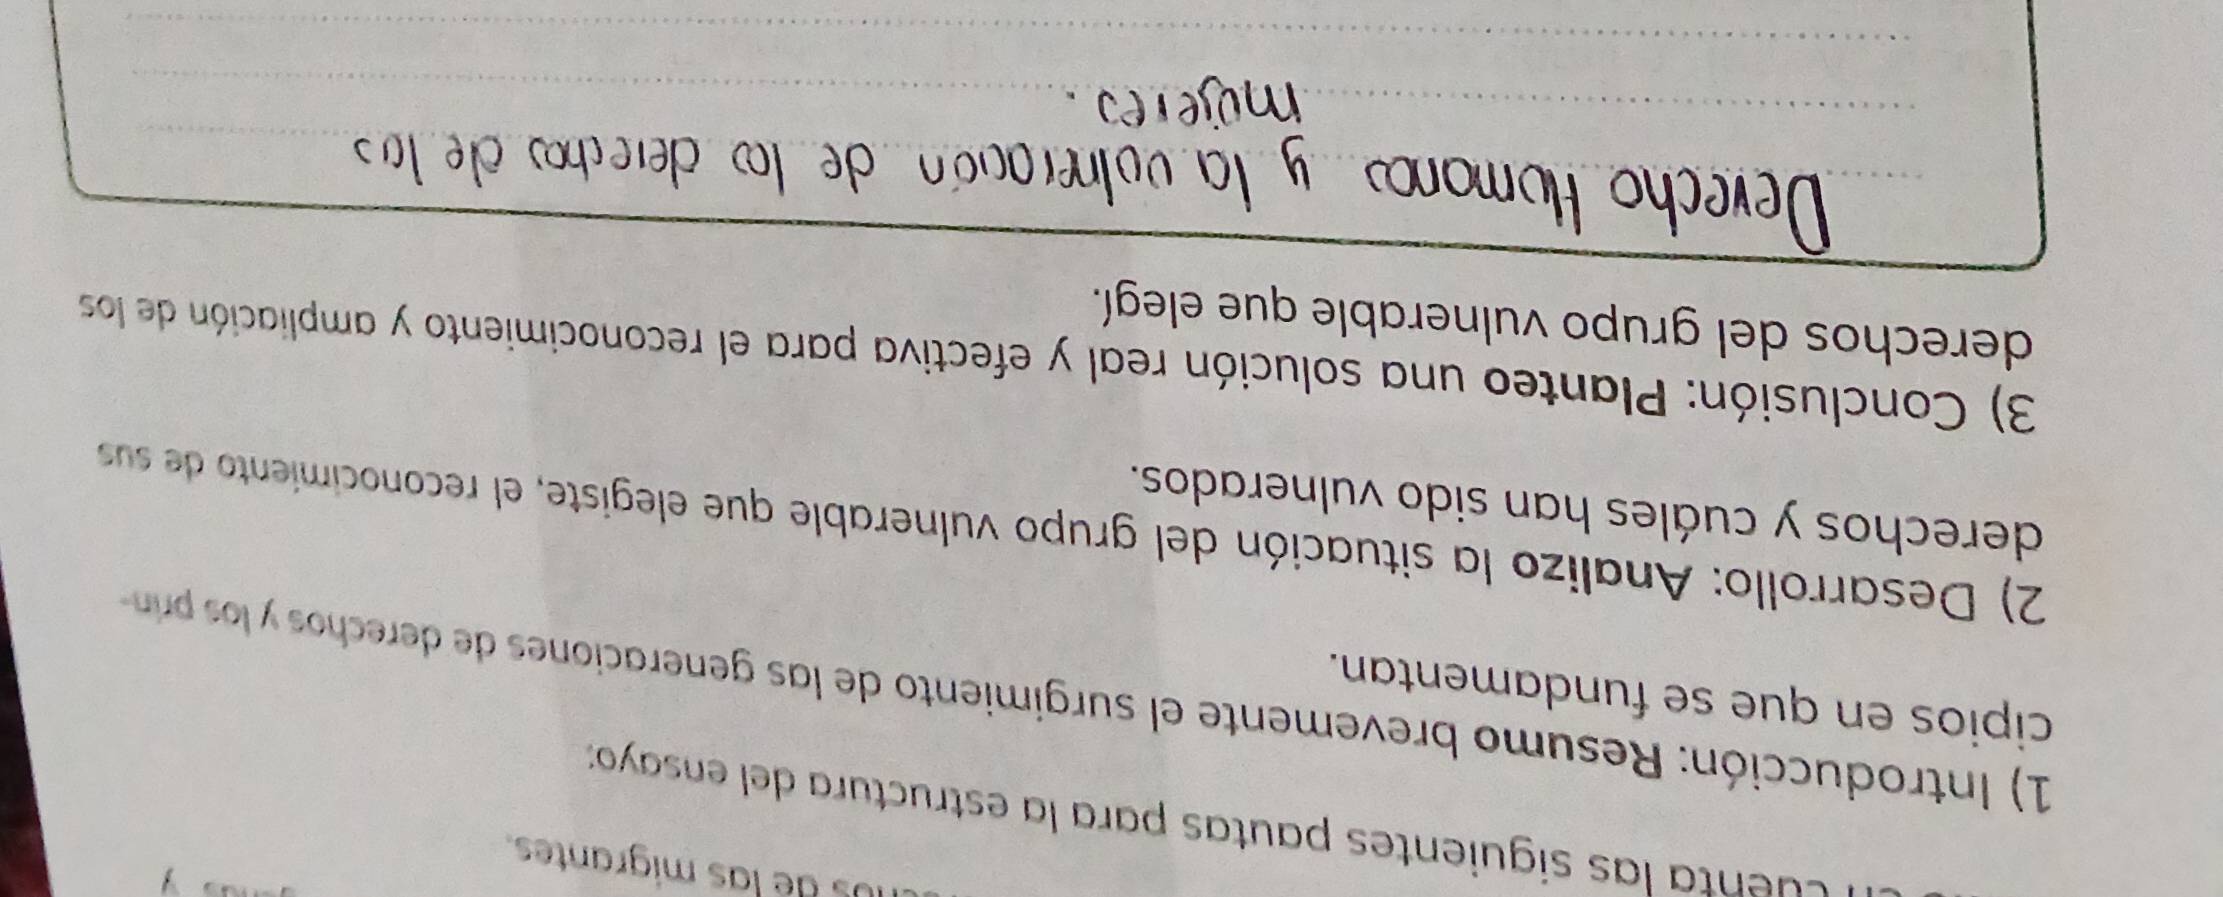 cuenta las siguientes pautas para la estructura del ensayo:
de las migrantes.
1) Introducción: Resumo brevemente el surgimiento de las generaciones de derechos y los prin-
cipios en que se fundamentan.
2) Desarrollo: Analizo la situación del grupo vulnerable que elegiste, el reconocimiento de sus
derechos y cuáles han sido vulnerados.
3) Conclusión: Planteo una solución real y efectiva para el reconocimiento y ampliación de los
derechos del grupo vulnerable que elegí.
Derecho Humanos y la vulneración de los derechos de las
mujeres.